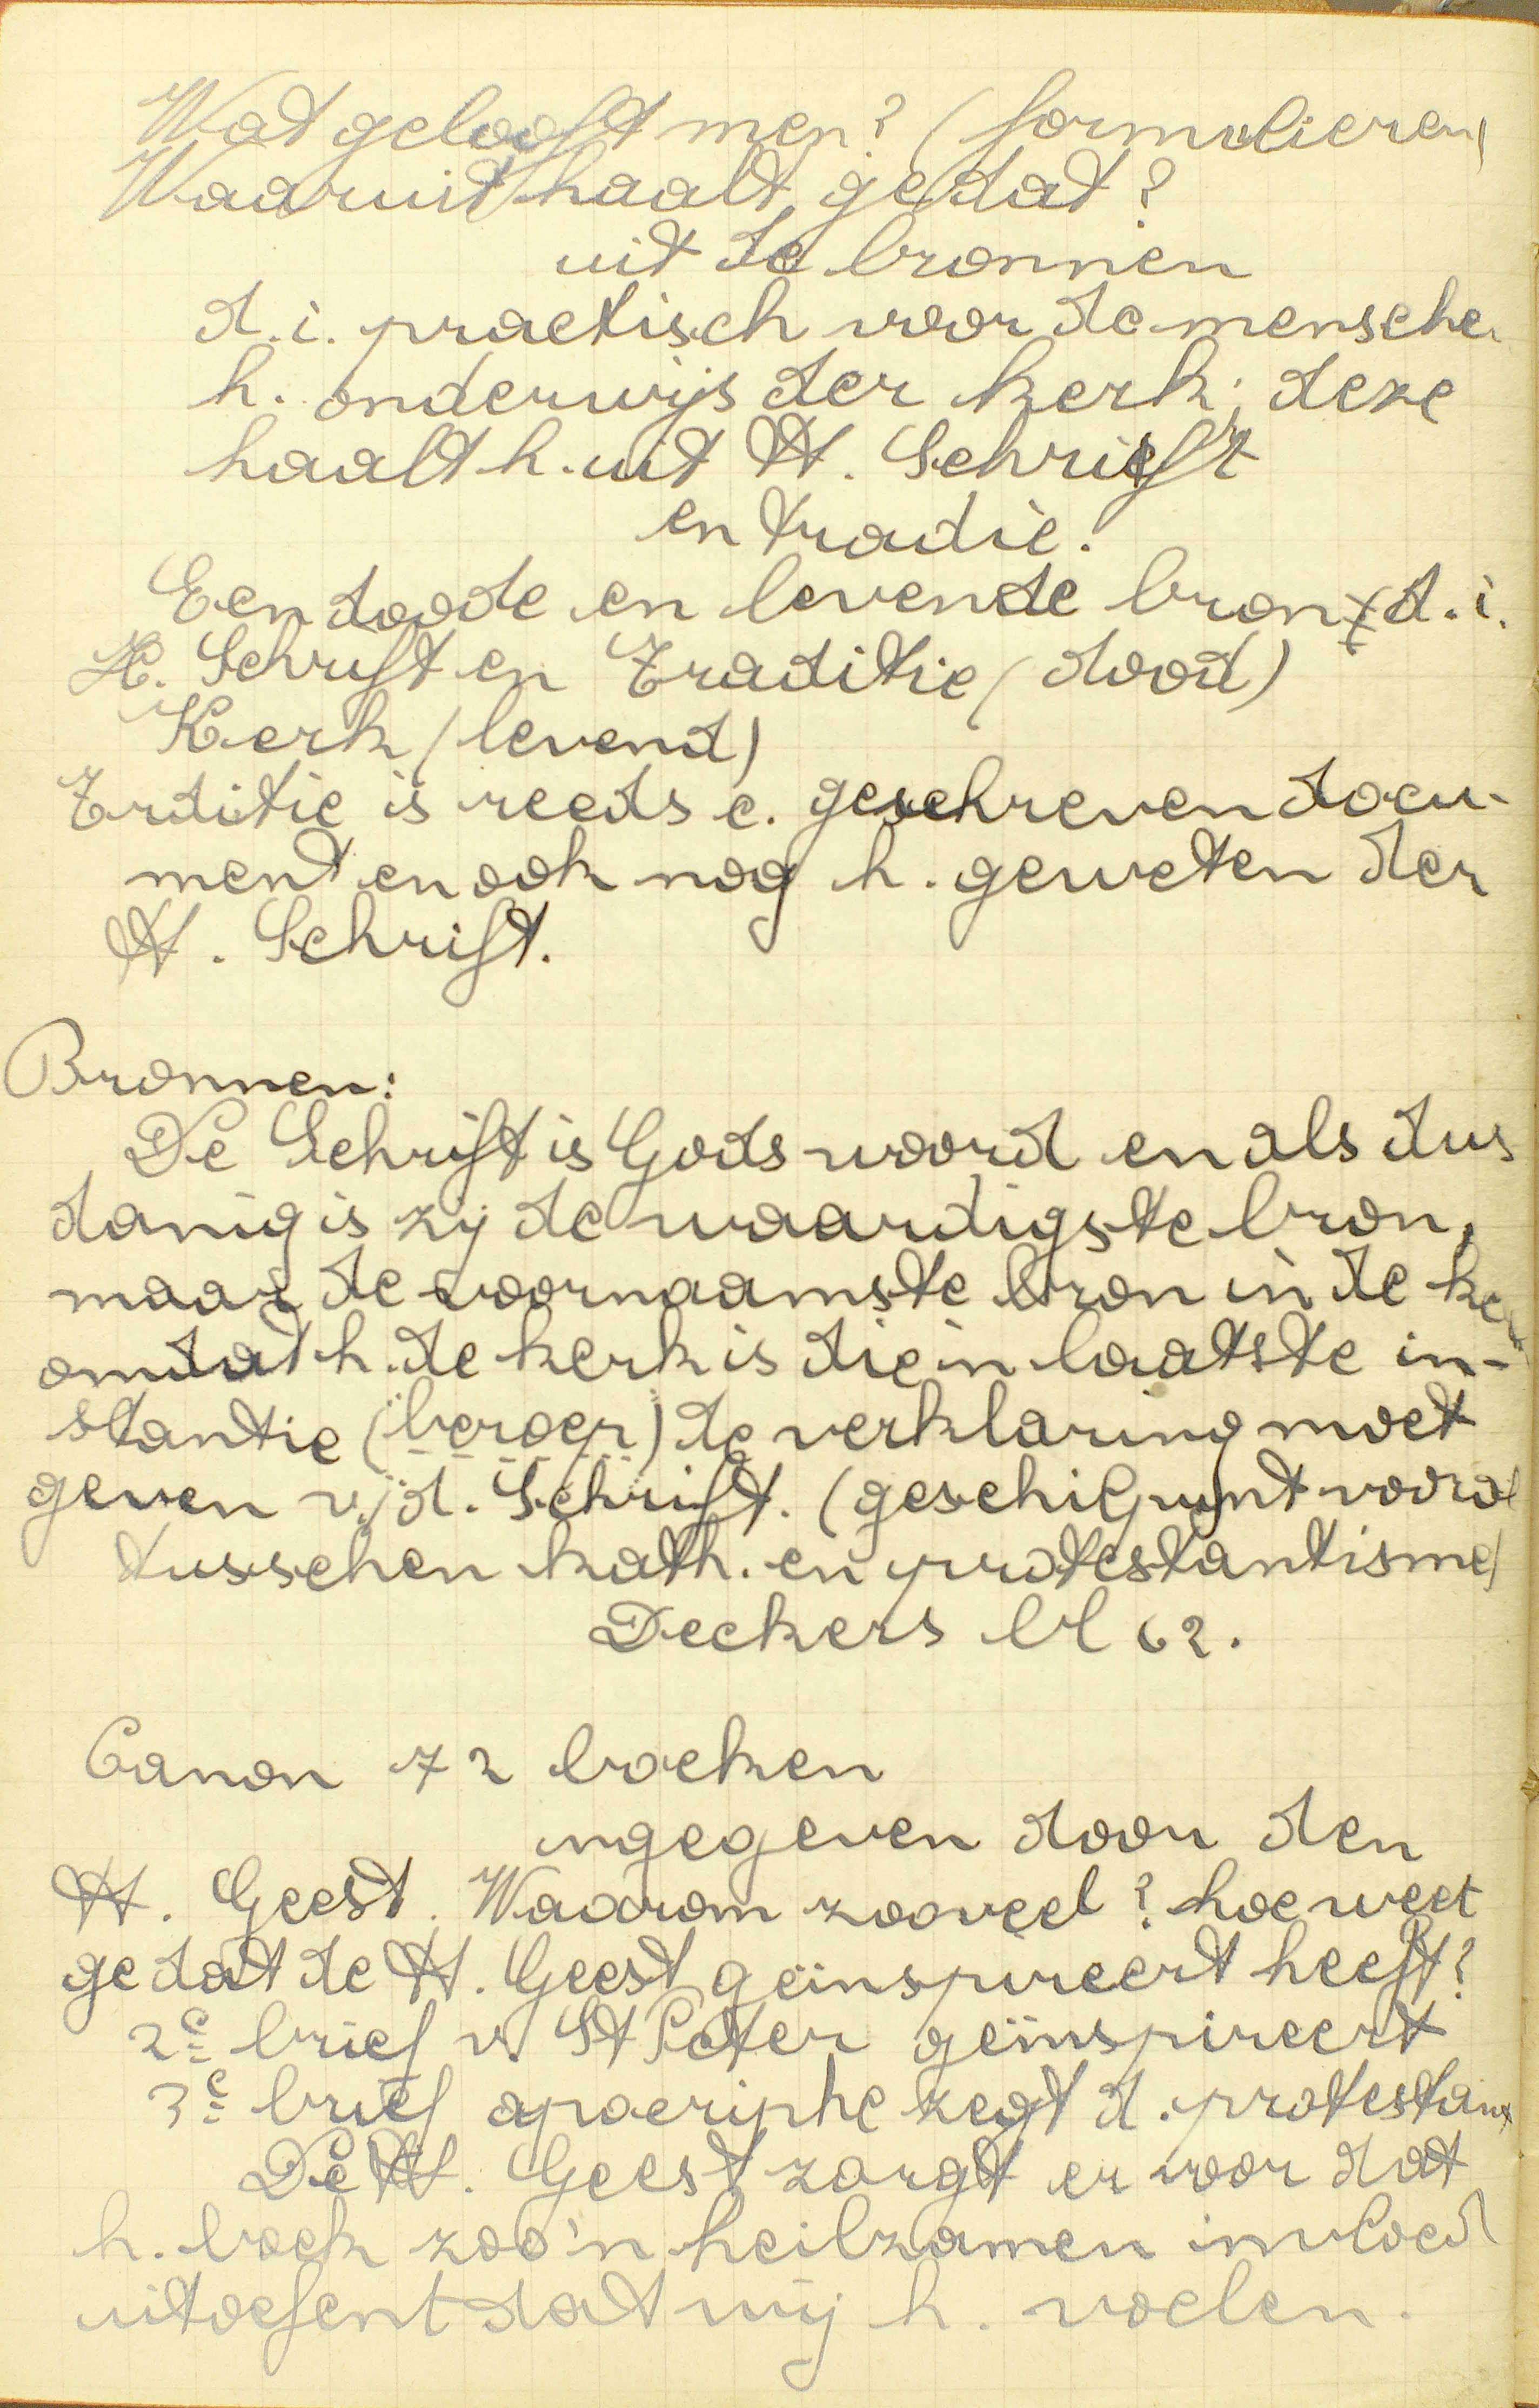 Wat gelooft men? (formulieren)
Waaruit haalt ge dat?
uit de bronnen
d.i. practisch voor de mensche
h. onderwijs der kerk; deze
haalt h. uit H. Schrift
en tradie.
Een doode en levende bron d.i.
H. Schrift en Traditie (dood)
Kerk (levend)
Trditie is reeds e. geschreven docu-
ment en ook nog h. geweten der
H. Schrift.
Bronnen:
De Schrift is Gods woord en als dus
danig is zij de waardigste bron,
maar de voornaamste bron in de kerk
omdat h. de kerk is die in laatste in-
stantie (beroep) de verklaring moet
geven v/d. Schrift. (geschilpunt vooral
tusschen kath. en protestantisme)
Deckers bl 62.
Canon 72 boeken
ingegeven door den
H. Geest. Waarom zooveel? hoe weet
ge dat de H. Geest geïnspireert heeft?
2e brief v. St Peter geïnspireert
3e brief apocriphe zegt d. protestant
De H. Geest zorgt er voor dat
h. boek zoo'n heilzamen invloed
uitoefent dat wij h. voelen.